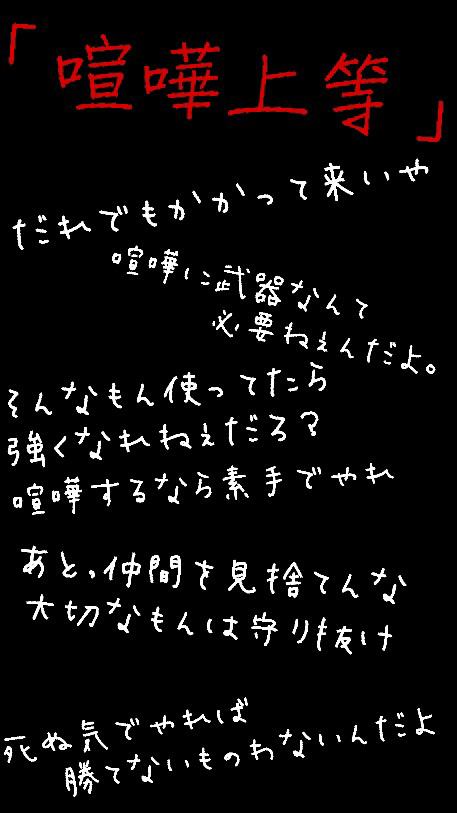 「喧嘩上等」
だれでもかかって来いや
喧嘩に武器なんて
必要ねぇんだよ。
そんなもん使ってたら
強くなれねぇだろ?
喧嘩するなら素手でやれ
あと、仲間を見捨てんな
大切なもんは守り抜け
死ぬ気でやれば
勝てないものわないんだよ